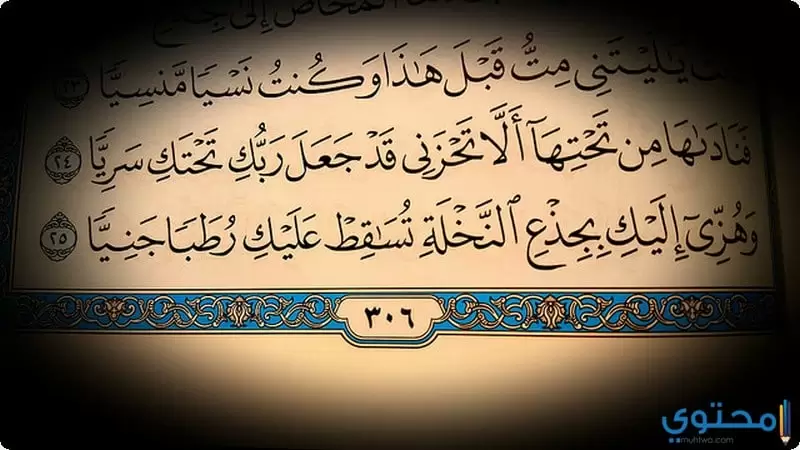 المخاض إلى جذع
يَٰلَيْتَنِى مِتُّ قَبْلَ هَٰذَا وَكُنتُ نَسْيًا مَّنسِيًّا ٢٣
فَنَادَىٰهَا مِن تَحْتِهَآ أَلَّا تَحْزَنِى قَدْ جَعَلَ رَبُّكِ تَحْتَكِ سَرِيًّا ٢٤
وَهُزِّىٓ إِلَيْكِ بِجِذْعِ ٱلنَّخْلَةِ تُسَٰقِطْ عَلَيْكِ رُطَبًا جَنِيًّا ٢٥
٣٠٦
محتوى
muhtwa.com